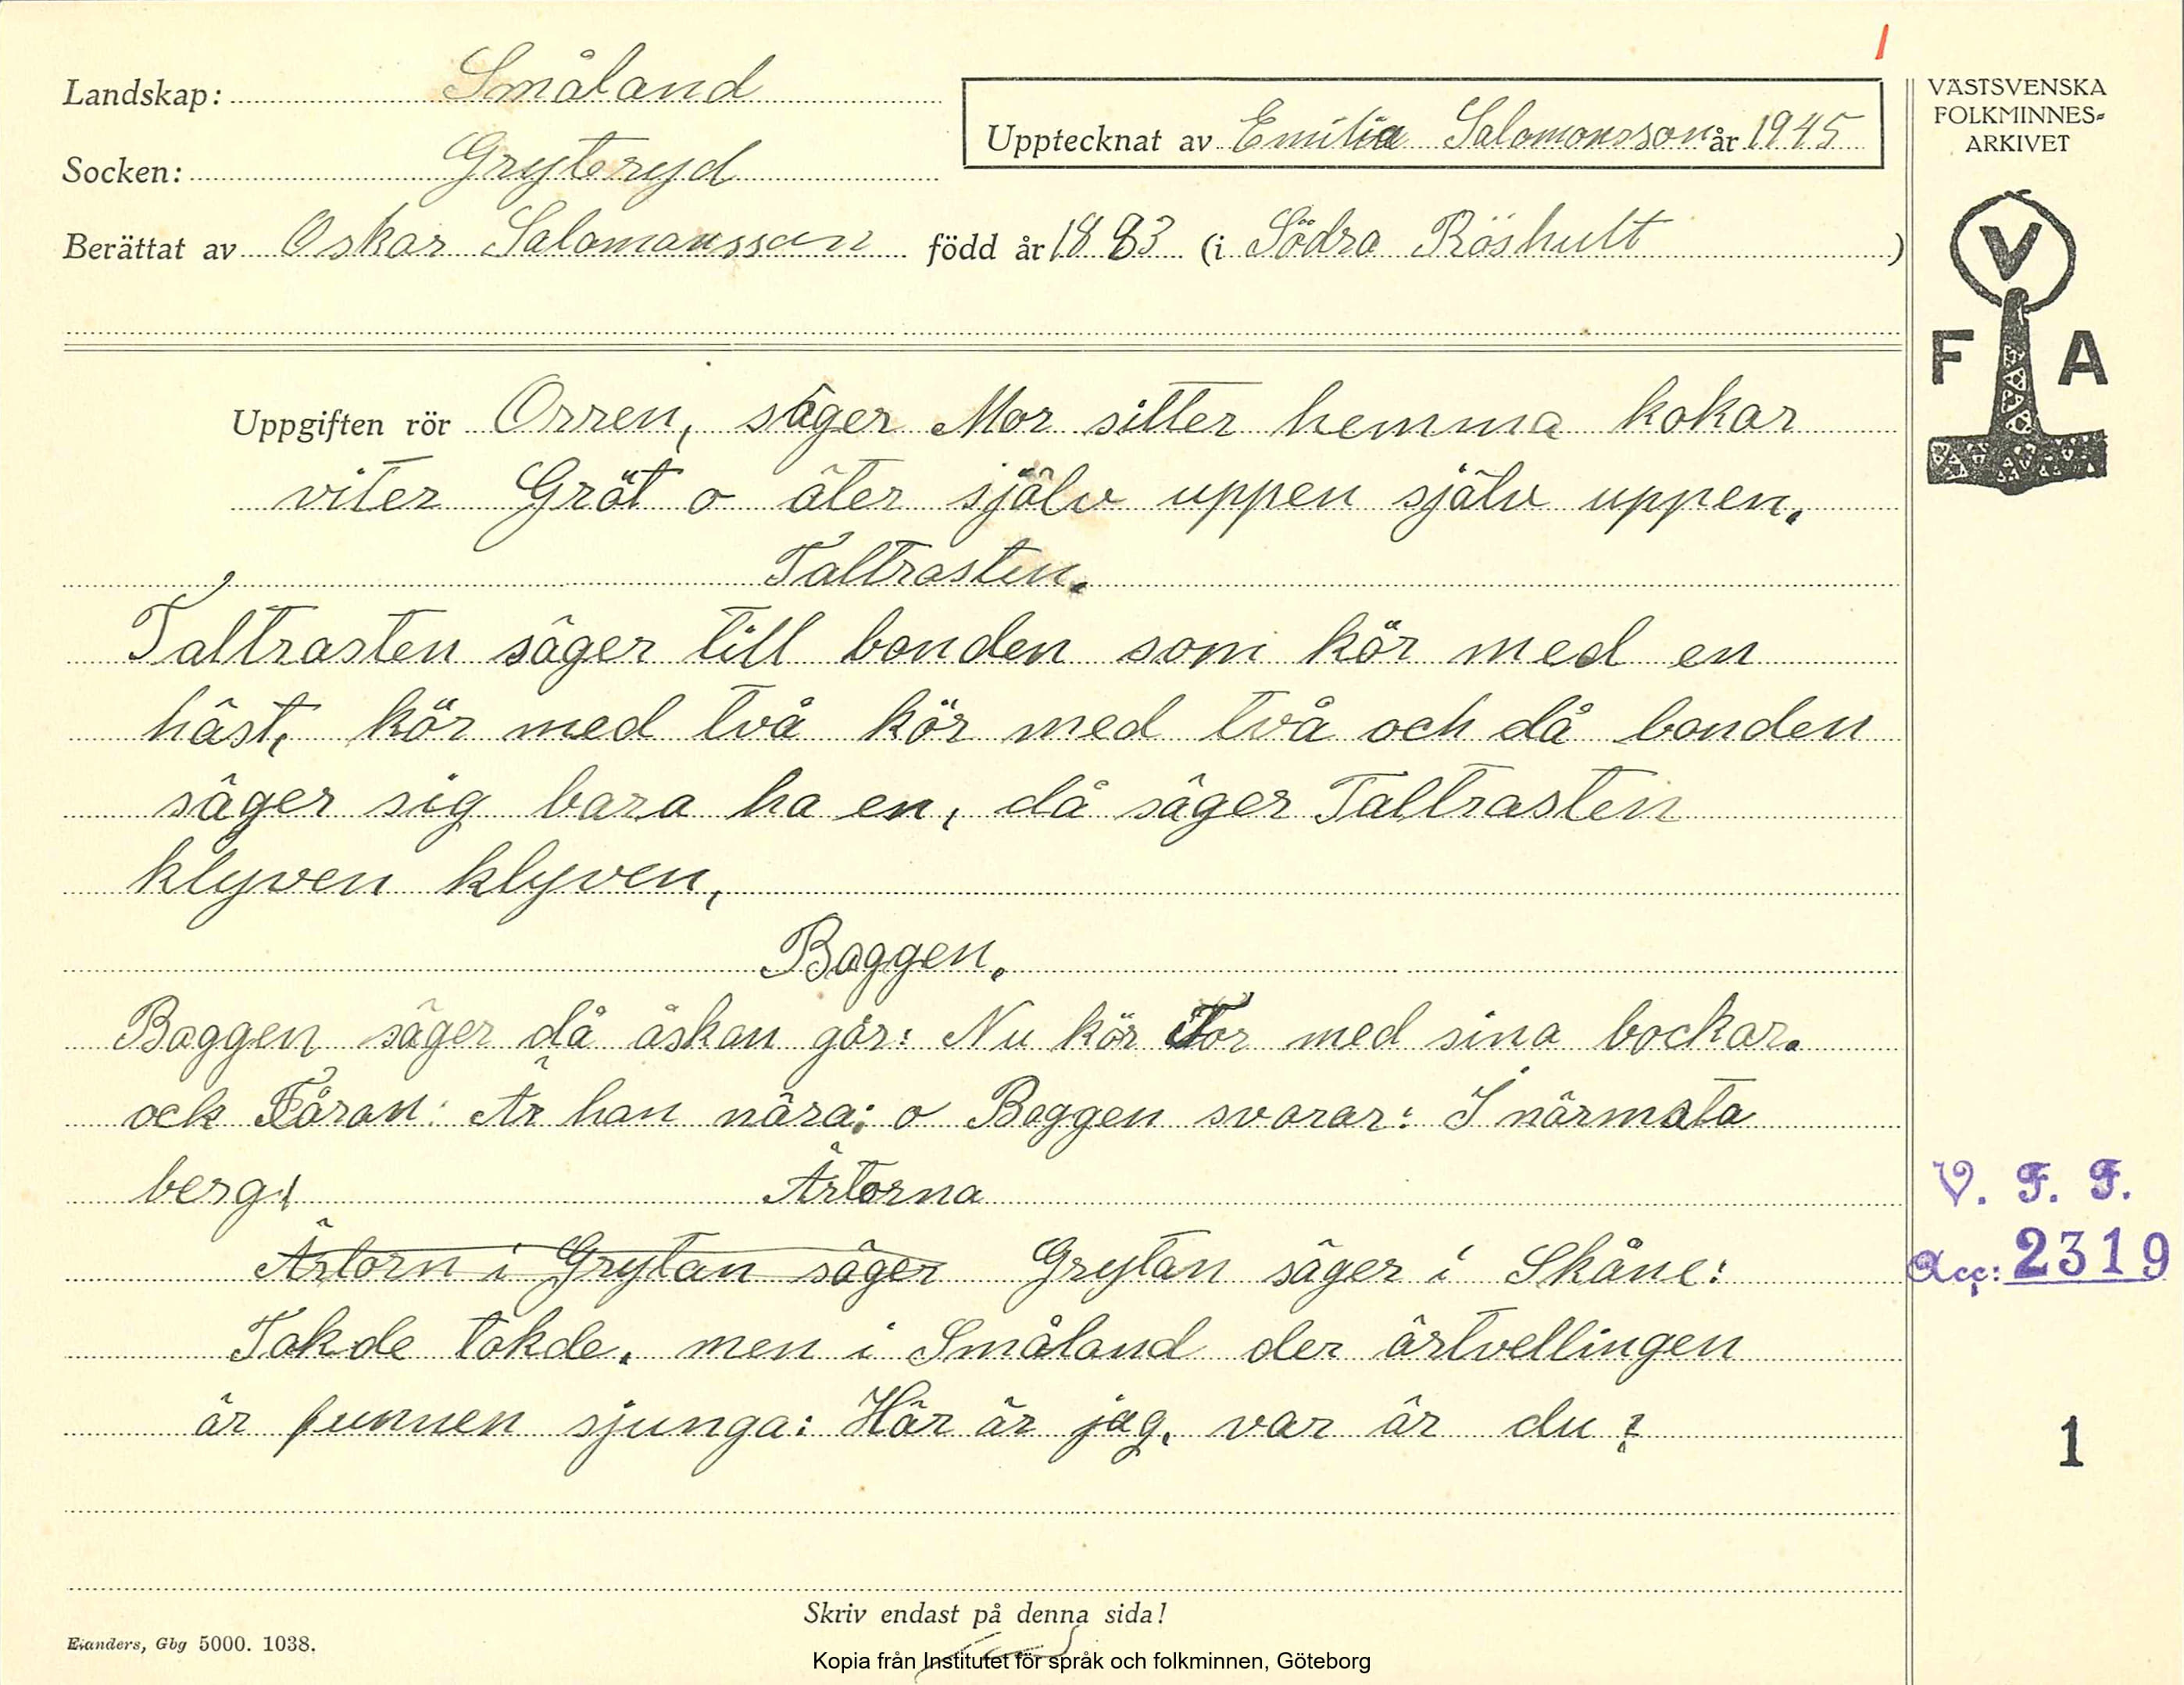 1
Landskap: Småland
Socken: Gryteryd
Upptecknat av Emilia Salomonsson år 1945
Berättat av Oskar Salomonsson född år 1883 (i Södra Röshult )
VÄSTSVENSKA
FOLKMINNES=
ARKIVET
V
F A
Uppgiften rör Orren, säger Mor sitter hemma kokar
viter Gröt o äter själv uppen själv uppen.
Taltrasten.
Taltrasten säger till bonden som kör med en
häst, kör med två kör med två och då bonden
säger sig bara ha en, då säger Taltrasten
klyven klyven,
Baggen.
Baggen säger då åskan går: Nu kör Tor med sina bockar.
ock Fåran: Är han nära; o Baggen svarar: I närmsta
berg! Ärtorna
Ärtorn i Grytan säger Grytan säger i Skåne:
Tokde tokde. men i Småland der ärtvellingen
är funnen sjunga: Här är jag, var är du?
V. F. F.
Acc: 2319
1
Skriv endast på denna sida!
Elanders, Gbg 5000. 1038.
Kopia från Institutet för språk och folkminnen, Göteborg